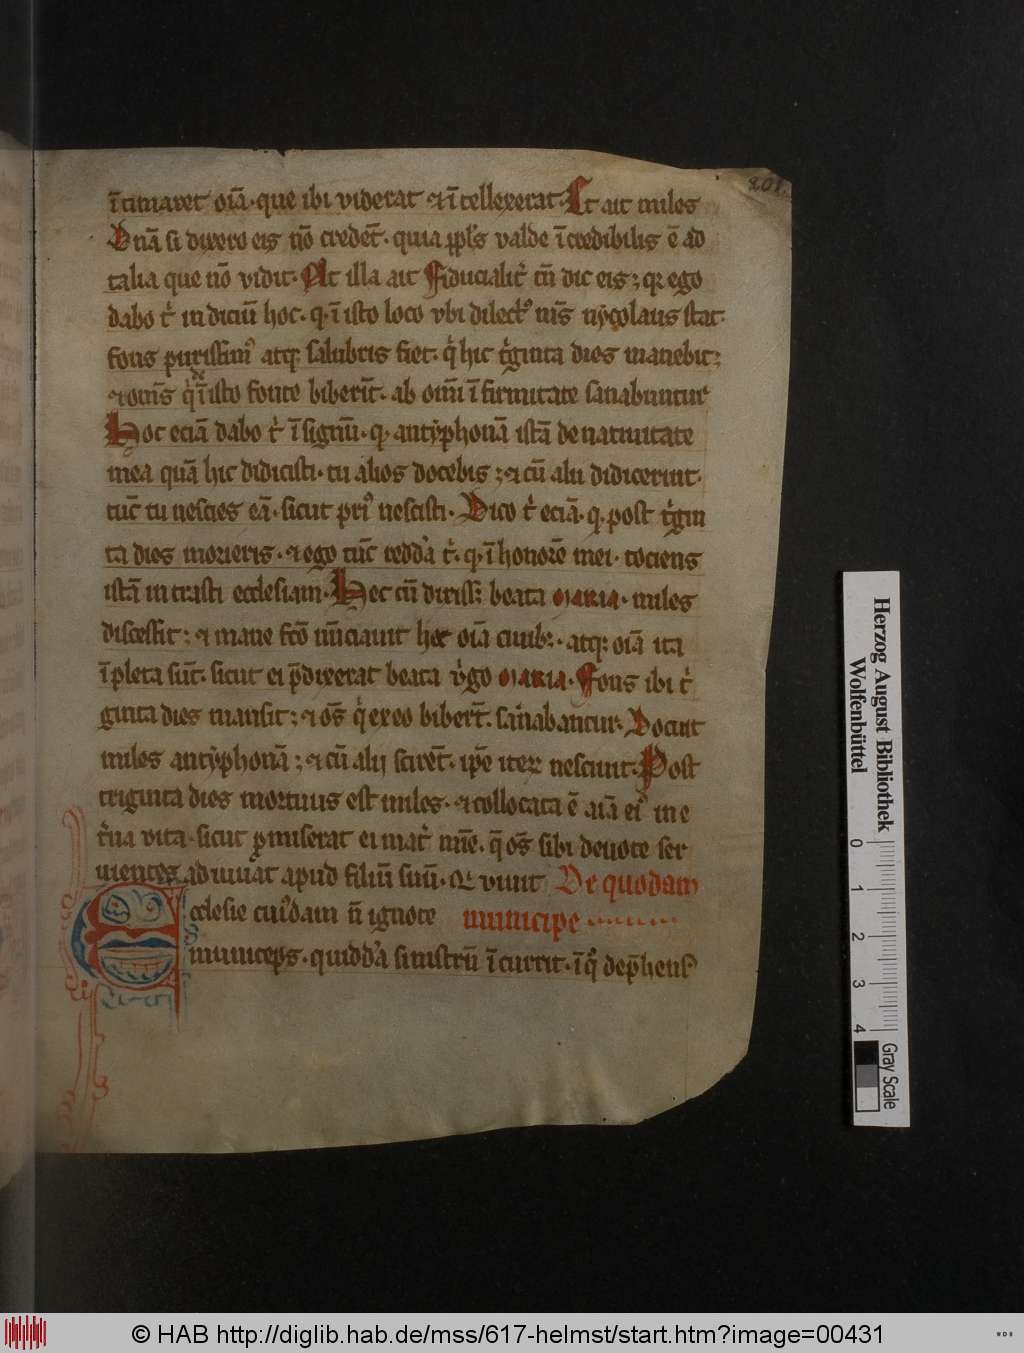 201.
ītimaret oīa · que ibi viderat ⁊ ītellexerat · Et ait miles
Dnā si dixero eis nō credēt · quia ppls valde īcredibilis ē ad
talia que nō vidit · At illa ait Fiducialit cū dic eis ; qr ego
dabo t indiciū hoc · q · ī isto loco vbi dilect9 nr̄s nycolaus stat ·
fons purissim9 atq; salubris fiet · q hic tginta dies manebit ;
⁊ oms q ī isto fonte biberīt · ab omī īfirmitate sanabuntur
Hoc eciā dabo t ī signū · q · antyphonā istā de natiuitate
mea quā hic didicisti · tu alios docebis ; ⁊ cū alii didicerint ·
tūc tu nescies eā · sicut pri9 nescisti · Dico t eciā · q · post tgin
ta dies morieris · ⁊ ego tūc reddā t · q · ī honorē mei · tociens
istā intrasti ecclesiam · Hec cū dixiss; beata MARIA · miles
discessit ; ⁊ mane fcō nūciauit hec oīa ciuib; · atq; oīa ita
īpleta sūt · sicut ei pdixerat beata vgo MARIA · Fons ibi t
ginta dies mansit ; ⁊ os q ex eo biberūt · sanabantur · Docuit
miles antyphonā ; ⁊ cū alii scirēt · ipe iter nesciuit · Post
triginta dies mortuus est miles · ⁊ collocata ē aīa ei9 in e
tna vita · sicut pmiserat ei mat mīe · q os sibi deuote ser
uientes adiuuat apud filiū suū · Qr viuit De quodam
Ecclesie cuidam nō ignote municipe
municeps · quiddā sinistrū īcurrit · ī q dephens9
Herzog August Bibliothek
Wolfenbüttel
0 1 2 3 4
Gray Scale
© HAB http://diglib.hab.de/mss/617-helmst/start.htm?image=00431